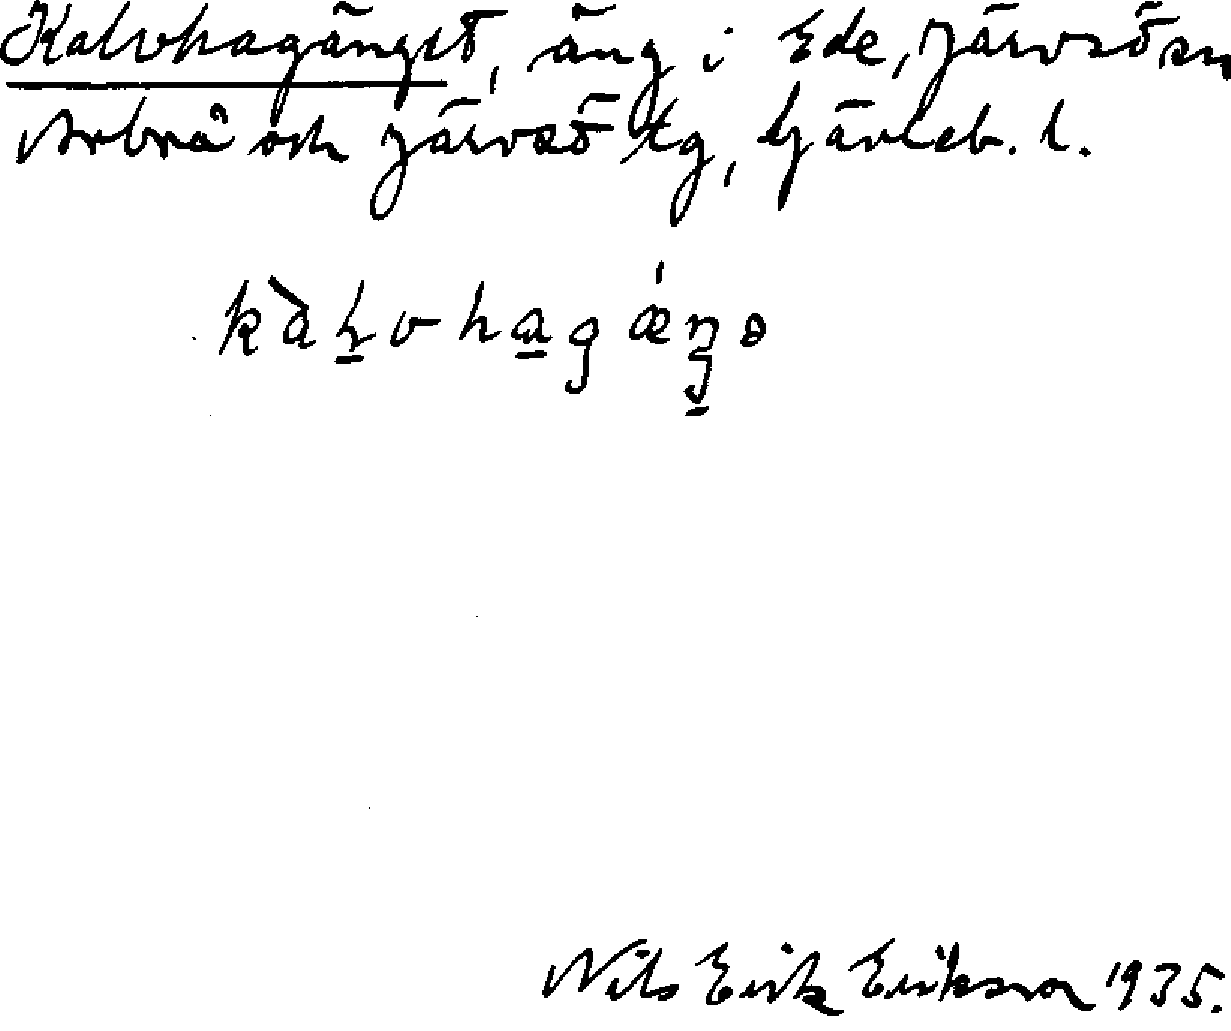 Kalvhagänget, äng i Ede, Järvsö sn
Arbrå och Järvsö tg, Gävleb. l.
kàꞎvhagǽŋə
Nils Erik Eriksson 1935.